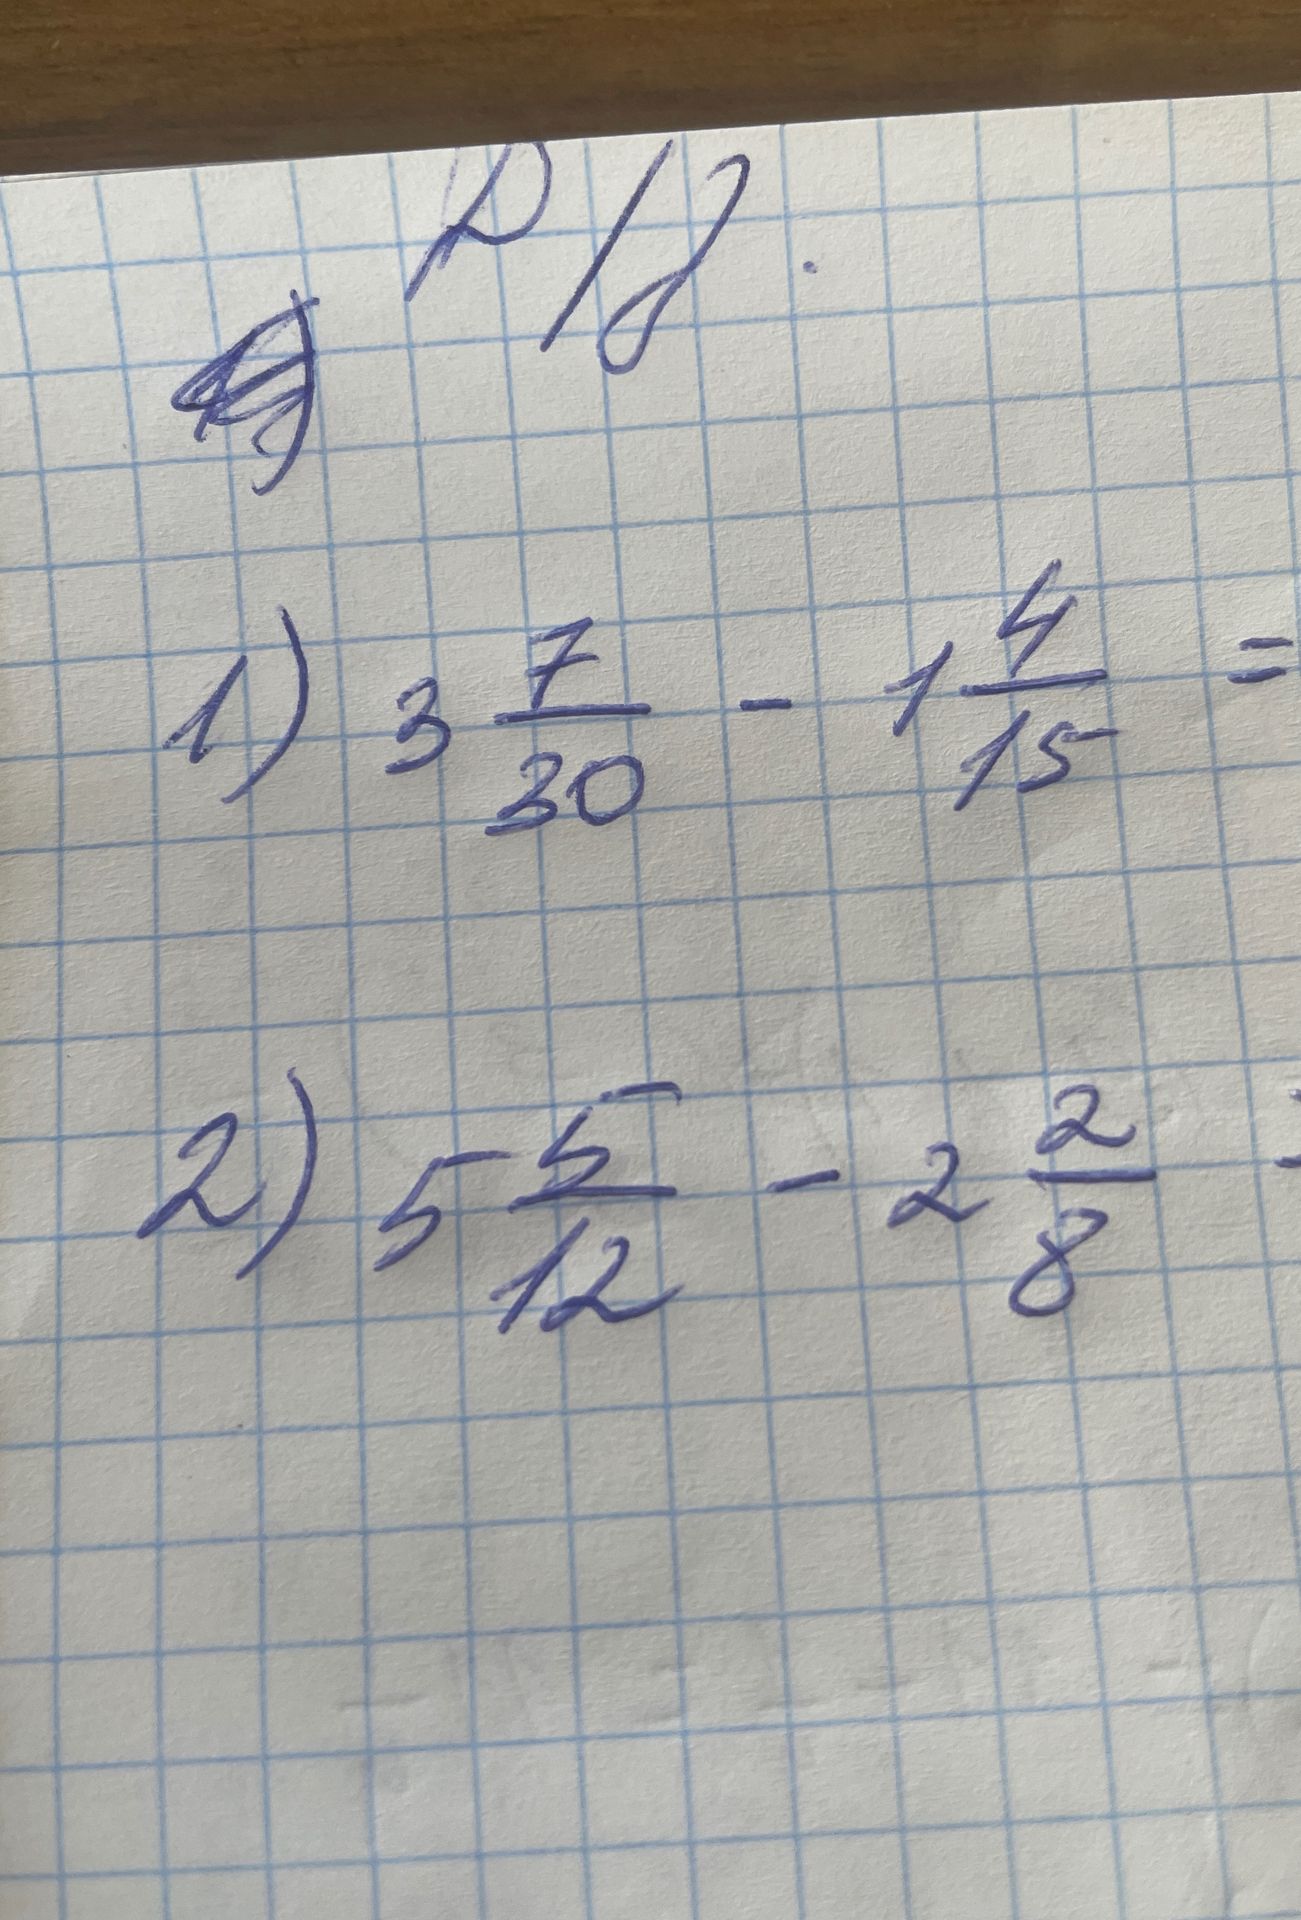 Д/з.
1) 3 7/30 - 1 4/15 =
2) 5 5/12 - 2 2/8 =